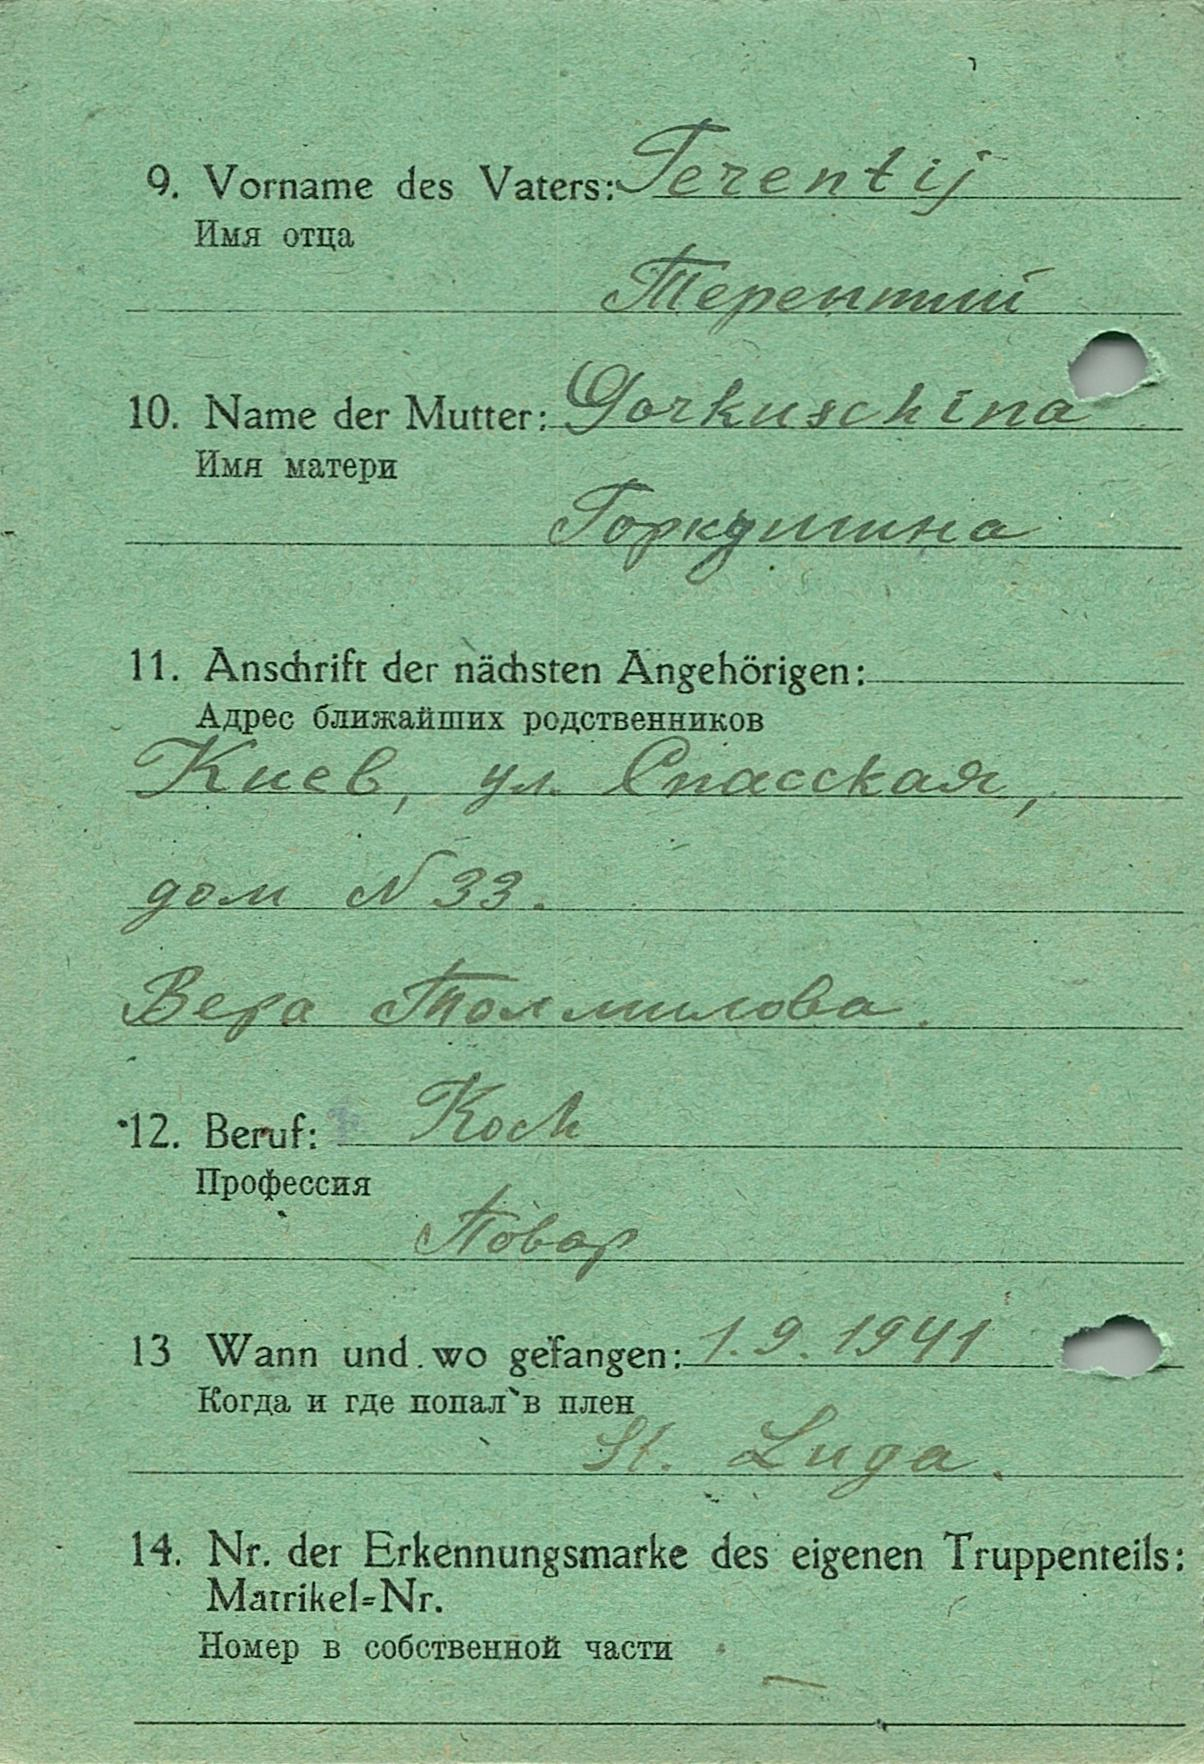 9. Vorname des Vaters: Terentij
Имя отца
Терентий
10. Name der Mutter: Gorkuschina
Имя матери
Горкушина
11. Anschrift der nächsten Angehörigen:
Адрес ближайших родственников
Киев, ул. Спасская,
дом N 33.
Вера Толмилова.
12. Beruf: Koch
Профессия
Повар
13 Wann und wo gefangen: 1.9.1941
Когда и где попал в плен
St. Luga.
14. Nr. der Erkennungsmarke des eigenen Truppenteils:
Matrikel=Nr.
Номер в собственной части
—